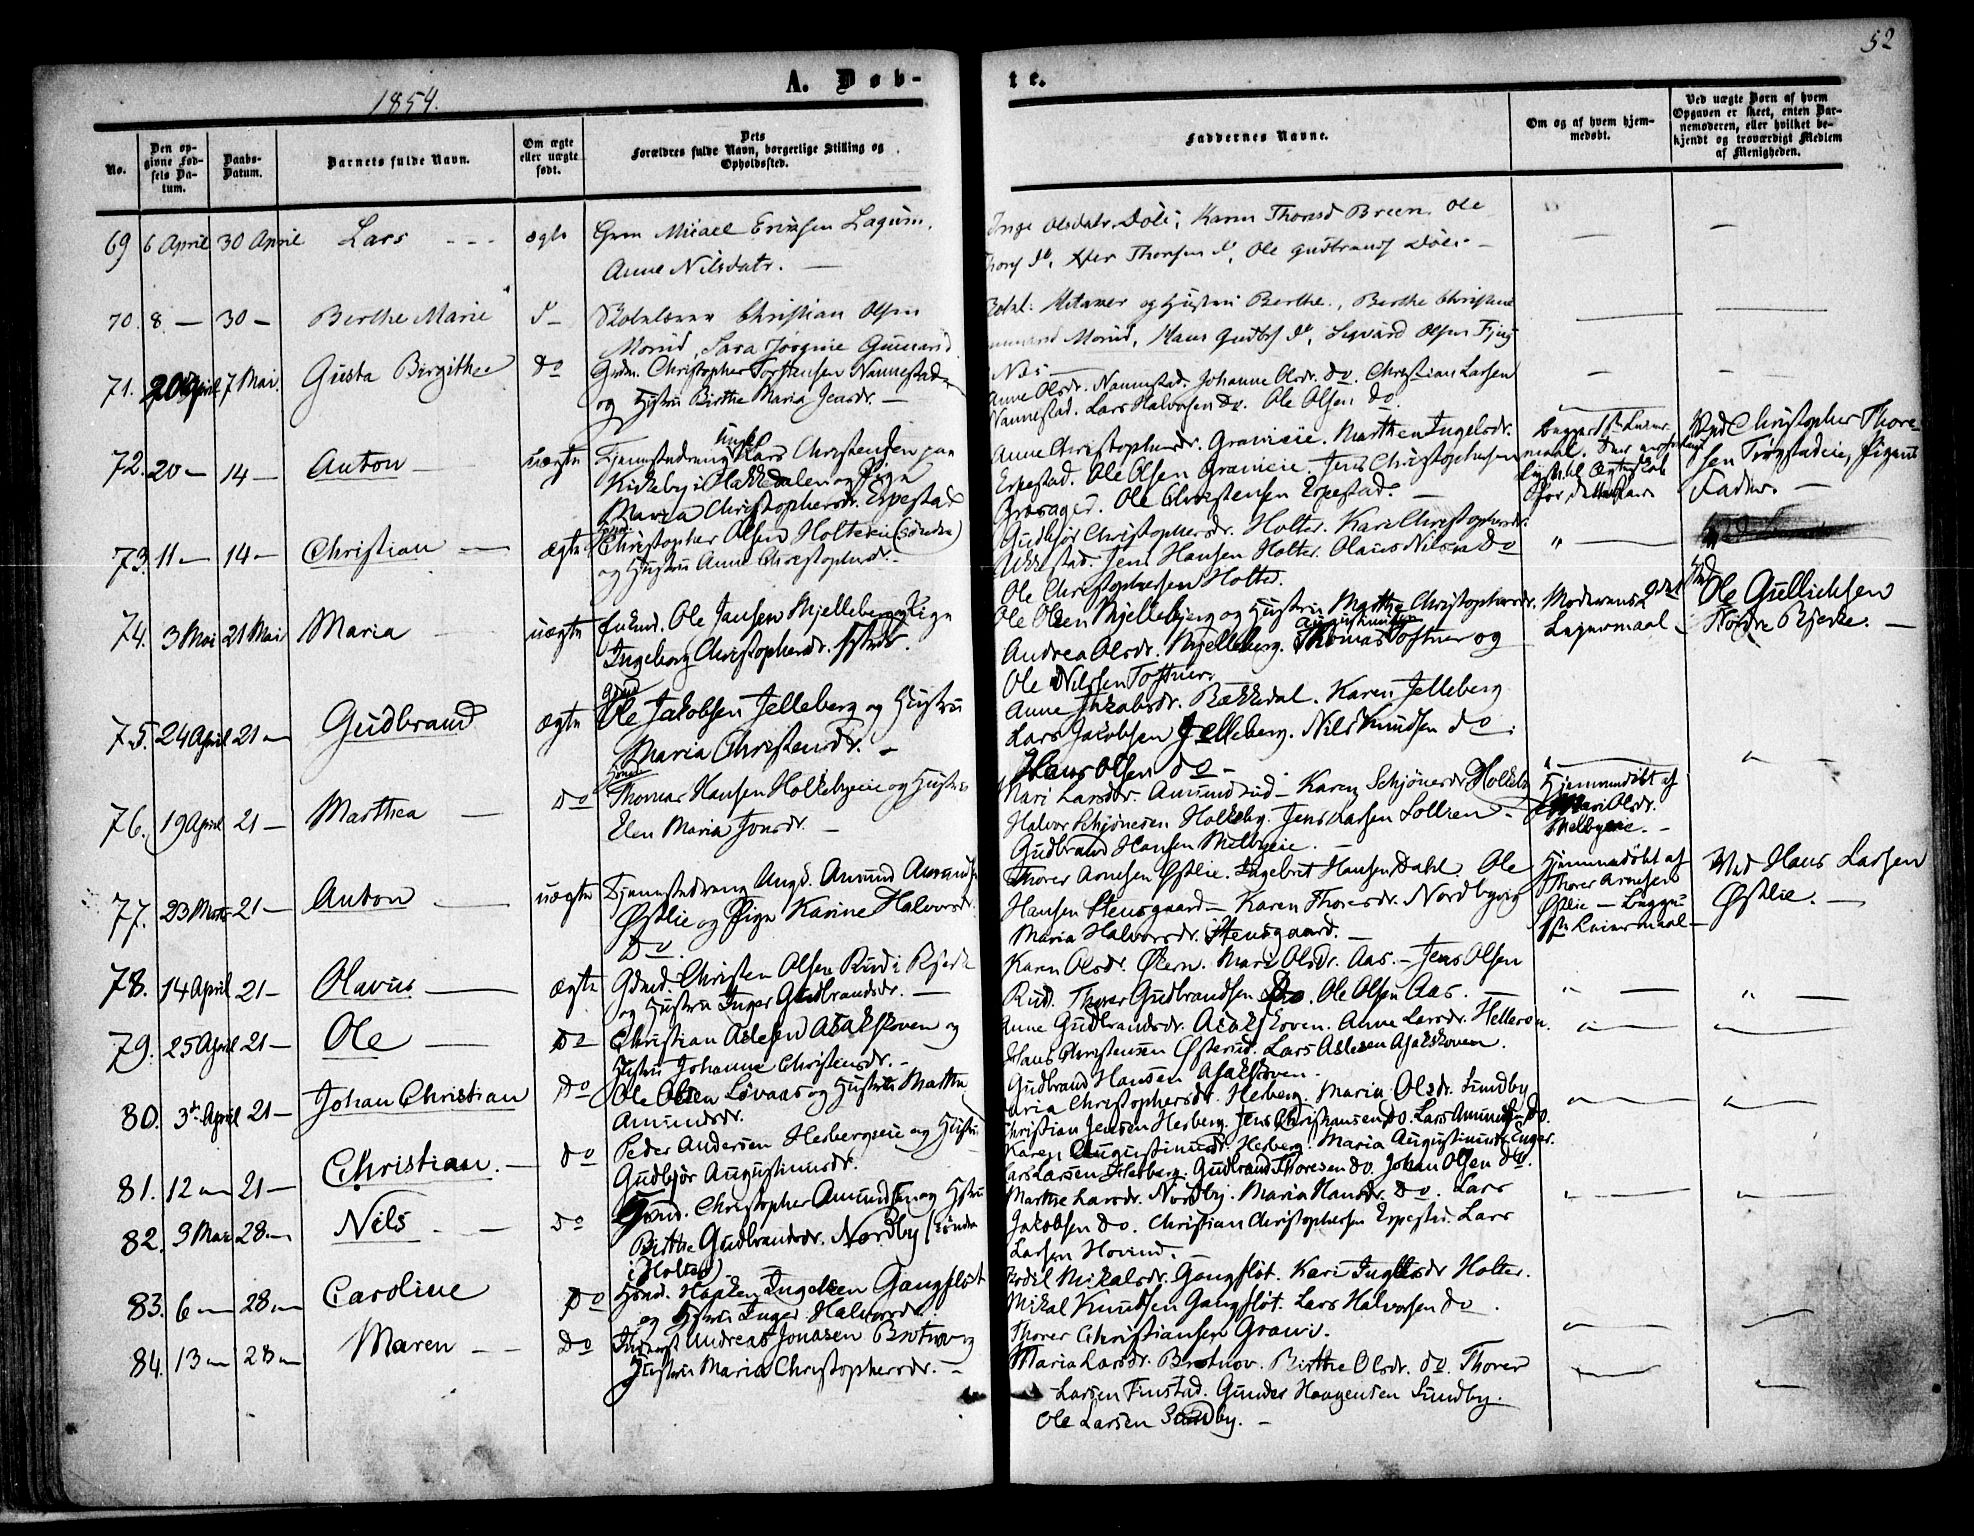 52
1854.
A. Døb-
te.
No.
Den op-
givne Fød-
sels Da-
tum.
Daabs-
Datum.
Barnets fulde Navn.
Om ægte
eller uægte
født.
Dets
Forældres fulde Navn, borgerlige Stilling og
Opholdssted.
Faddernes Navne.
Om og af hvem hjem-
medøbt.
Ved uægte Børn af hvem
Opgaven er skeet, enten Bar-
nemoderen, eller hvilket be-
kjendt og troværdigt Medlem
af Menigheden.
69 6 April 30 April Lars ægte Micael Ericksen
Anne Nilsdatr. —
Olsdatr. Döli; Karen Thorsd Breen. Ole
Thorsen do, Ole Gudbrands Döli —
70. 8 — 30 — Berthe Marie Christian Olsen
Morud, Sara Jørgine Gunnarsd.
og Hustru Berthe., Berthe Christine
Morud, Hans Gudbs do, Sigvard Olsen
71. 20 April 7 Mai. Gusta Birgithe do Grdm. Christopher Torstensen Nannestad
og Hustru Birthe Maria Jensdr. —
Anne Olsdr. Nannestad. Johanne Olsdr. do. Christian Larsen
Nannestad. Lars Halvorsen do. Ole Olsen do.
72. 20 — 14 — Anton — uægte Tjenestedreng Ungk. Lars Christensen paa
Kirkeby i Hakkedalen og Pige
Maria Christophersdr. Erpestad
Anne Christophersdr. Graveie. Marthe Ingelsdr.
Erpestad. Ole Olsen Graveie. Jens Christophersen
Ole Christensen Erpestad. —
Begges 1ste Leier-
maal.
Ved Christopher Thore-
sen Trøgstadeie, Pigens
Fader. —
73. 11 — 14 — Christian — ægte Christopher Olsen Holtereie (søndre)
og Hustru Anne Christophersdr. —
Gudbjør Christophersdr. Holter. Kari Christophersdr.
Jens Hansen Holter. Olaus Nilsen do
Ole Christophersen Holter.
74. 3 Mai 21 Mai Maria — uægte Enkmd. Ole Jansen Mjelleberg og Pige
Ingeborg Christophersdr. Hstvdt.
Ole Olsen Mjelleberg og Hustru Marthe Christophersdr.
Andrea Olsdr. Mjelleberg. Thomas Toftner og
Ole Nilssen Toftner.
Moderens 2det
Leiermaal —
Ved Ole Gullichsen
Nordre Bjerke. —
75. 24 April 21 — Gudbrand ægte Gdmd Ole Jakobsen Jelleberg og Hustru
Maria Christensdr. —
Anne Jakobsdr. Bækkedal. Karen Jelleberg
Lars Jacobsen Jelleberg. Nils Knudsen do.
Hans Olsen do —
76. 19 April 21 — Marthea — do Thomas Hansen Holkebyeie og Hustru
Elen Maria Jonsdr. —
Mari Larsdr. Amundrud — Karen Schjønesdr. Holkeby
Halvor Schjønesen Holkeby. Jens Larsen Sollien —
Gudbrand Hansen Melbyeie. —
Hjemmedøbt af
Mari Olsdr.
Melbyeie. —
77. 23 Marts 21 — Anton — uægte Tjenestedreng Ungk. Amund Amundsen
Østlie og Pige Karine Halvorsdr.
Do.
Thorer Arnesen Østlie. Ingebret Hansen Dahl. Ole
Hansen Stensgaard — Karen Thoresdr. Nordby og
Maria Halvorsdr. Stensgaard. —
Hjemmedøbt af
Thorer Arnesen
Østlie — Begges
1ste Leiermaal —
Ved Hans Larsen
Østlie. —
78. 14 April 21 — Olavus — ægte Gdmd. Christen Olsen Rud i Bjerke
og Hustru Inger Gudbrandsdr. —
Karen Olsdr. Økern. Mari Olsdr. Aas. — Jens Olsen
Rud. Thorer Gudbrandsen Do. Ole Olsen Aas. —
79. 25 April 21 — Ole — Do Christian Aslesen Asakskoven og
Hustru Johanne Christensdr. —
Anne Gudbrandsdr. Asakskoven. Anne Larsdr. Helleren.
Hans Christensen Østerud. Lars Aslesen Asakskoven.
Gudbrand Hansen Asakskoven.
80. 3de April 21 — Johan Christian Do Ole Olsen Løvaas og Hustru Marthe
Amundsdr.
Maria Christophersdr. Herberg. Maria Olsdr. Sundby
Christian Jensen Herberg. Jens Christiansen Do. Lars Amunds. Do.
81. 12 — 21 — Christian. — do Peder Andersen Herbergseie og Hustru
Gudbjør Augustinusdr.
Karen Augustinusdr. Herberg. Maria Augustinusdr. Enger.
Lars Larsen Herberg. Gudbrand Thoresen do. Johan Olsen do.
82. 9 Mai 28 — Nils — do Gdmd. Christopher Amundsen og Hstru
Birthe Gudbrandsdr. Nordby (søndre
i Holter)
Marthe Larsdr. Nordby. Maria Hansdr. Do. Lars
Jakobsen do. Christian Christophersen Erpestad. Lars
Larsen Hovind.
83. 6 — 28 — Caroline Do Haaken Ingelsen Gangfløt
og Hustru Inger Halvorsdr.
Bodil Mikalsdr. Gangfløt. Kari Ingelsdr Holter.
Mikal Knudsen Gangfløt. Lars Halvorsen do.
Thorer Christiansen Grawi.
84. 13 — 28 — Maren — Do Andreas Jonasen Brotnov og
Hustru Maria Christophersdr. —
Maria Larsdr. Brotnov. Birthe Olsdr. do. Thorer
Larsen Finstad. Gunder Haagensen Sundby.
Ole Larsen Sundby. —